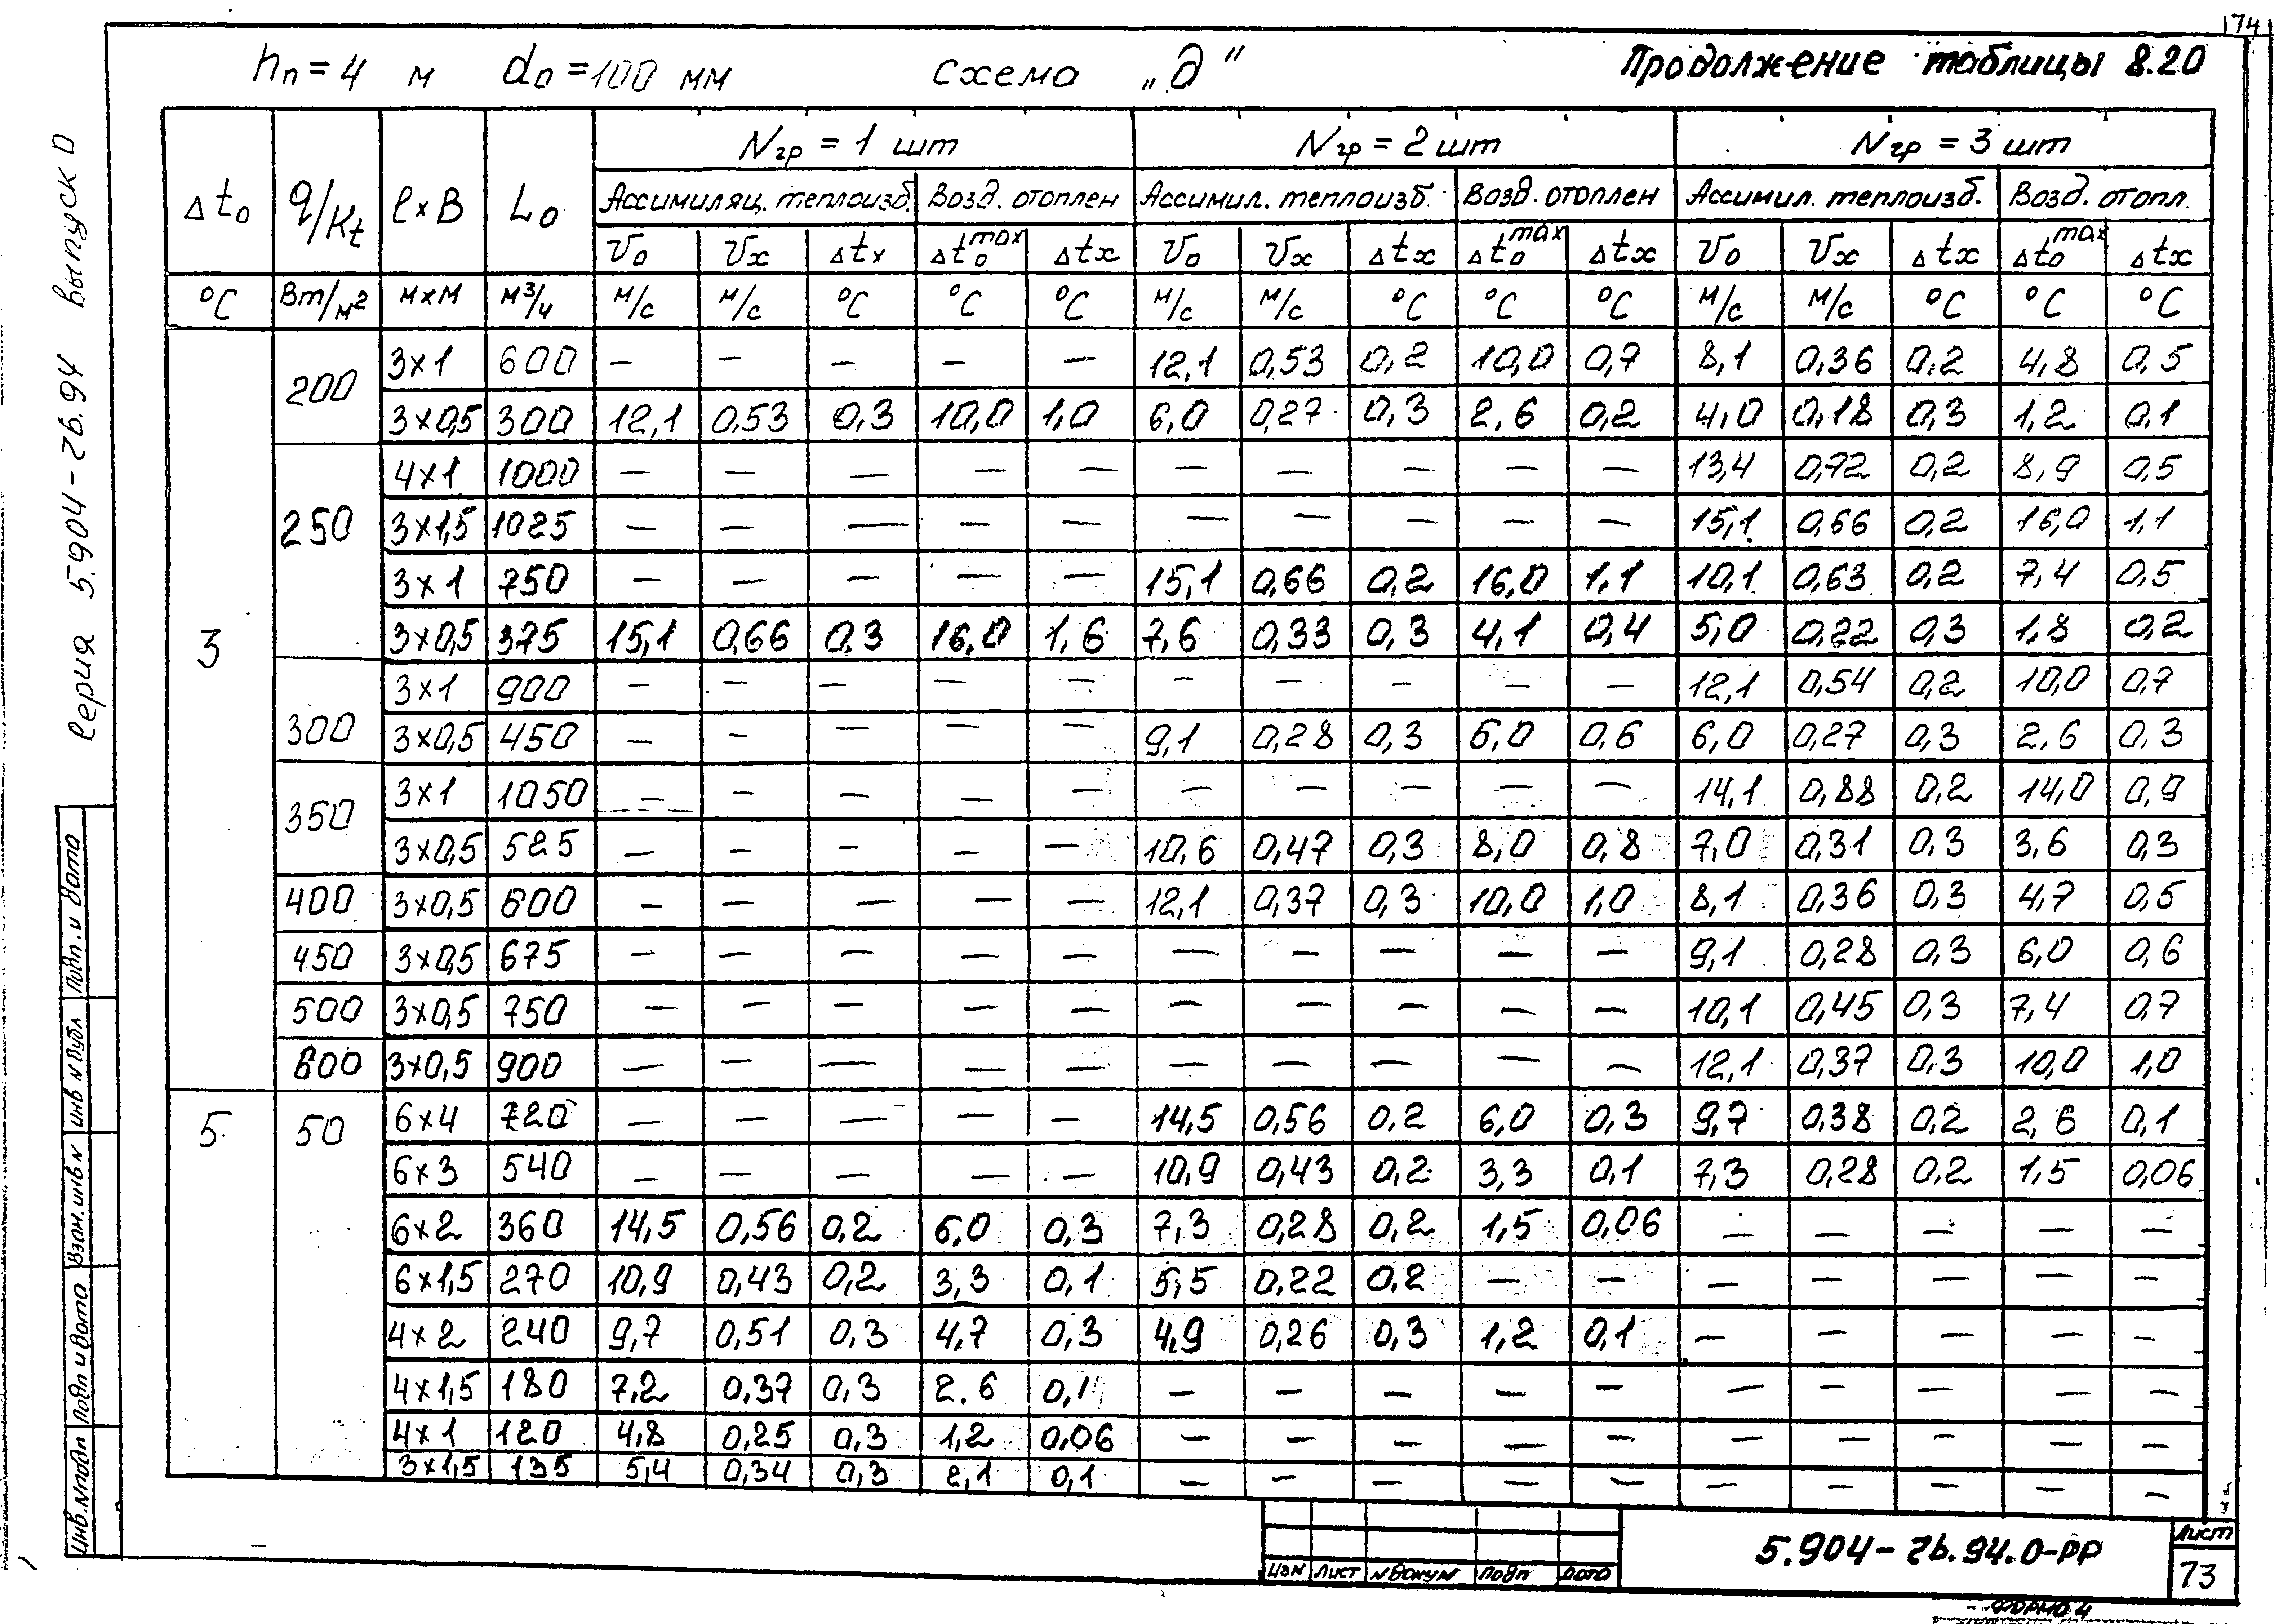 174
hп = 4 м d₀ = 100 мм схема „д" Продолжение таблицы 8.20
Δt₀ q/Kt ℓ×B L₀ Nгр = 1 шт Nгр = 2 шт Nгр = 3 шт
Ассимиляц. теплоизб. Возд. отоплен Ассимил. теплоизб. Возд. отоплен Ассимил. теплоизб. Возд. отопл.
V₀ Vx Δtx Δt₀max Δtx V₀ Vx Δtx Δt₀max Δtx V₀ Vx Δtx Δt₀max Δtx
°C Вт/м² м×м м³/ч м/с м/с °C °C °C м/с м/с °C °C °C м/с м/с °C °C °C
3 200 3×1 600 — — — — — 12,1 0,53 0,2 10,0 0,7 8,1 0,36 0,2 4,8 0,5
3×0,5 300 12,1 0,53 0,3 10,0 1,0 6,0 0,27 0,3 2,6 0,2 4,0 0,18 0,3 1,2 0,1
250 4×1 1000 — — — — — — — — — — 13,4 0,72 0,2 8,9 0,5
3×1,5 1025 — — — — — — — — — — 15,1 0,66 0,2 16,0 1,1
3×1 750 — — — — — 15,1 0,66 0,2 16,0 1,1 10,1 0,63 0,2 7,4 0,5
3×0,5 375 15,1 0,66 0,3 16,0 1,6 7,6 0,33 0,3 4,1 0,4 5,0 0,22 0,3 1,8 0,2
300 3×1 900 — — — — — — — — — — 12,1 0,54 0,2 10,0 0,7
3×0,5 450 — — — — — 9,1 0,28 0,3 6,0 0,6 6,0 0,27 0,3 2,6 0,3
350 3×1 1050 — — — — — — — — — — 14,1 0,88 0,2 14,0 0,9
3×0,5 525 — — — — — 10,6 0,47 0,3 8,0 0,8 7,0 0,31 0,3 3,6 0,3
400 3×0,5 600 — — — — — 12,1 0,37 0,3 10,0 1,0 8,1 0,36 0,3 4,7 0,5
450 3×0,5 675 — — — — — — — — — — 9,1 0,28 0,3 6,0 0,6
500 3×0,5 750 — — — — — — — — — — 10,1 0,45 0,3 7,4 0,7
600 3×0,5 900 — — — — — — — — — — 12,1 0,37 0,3 10,0 1,0
5 50 6×4 720 — — — — — 14,5 0,56 0,2 6,0 0,3 9,7 0,38 0,2 2,6 0,1
6×3 540 — — — — — 10,9 0,43 0,2 3,3 0,1 7,3 0,28 0,2 1,5 0,06
6×2 360 14,5 0,56 0,2 6,0 0,3 7,3 0,28 0,2 1,5 0,06 — — — — —
6×1,5 270 10,9 0,43 0,2 3,3 0,1 5,5 0,22 0,2 — — — — — — —
4×2 240 9,7 0,51 0,3 4,7 0,3 4,9 0,26 0,3 1,2 0,1 — — — — —
4×1,5 180 7,2 0,37 0,3 2.6 0,1 — — — — — — — — — —
4×1 120 4,8 0,25 0,3 1,2 0,06 — — — — — — — — — —
3×1,5 135 5,4 0,34 0,3 2,1 0,1 — — — — — — — — — —
Серия 5.904-7в.94 выпуск 0
Инв.Nподл Подп и дата Взам.инв N инв N дубл Подп. и дата
изм лист N докум подп дата
5.904-7в.94.0-РР
Лист
73
Формо 4